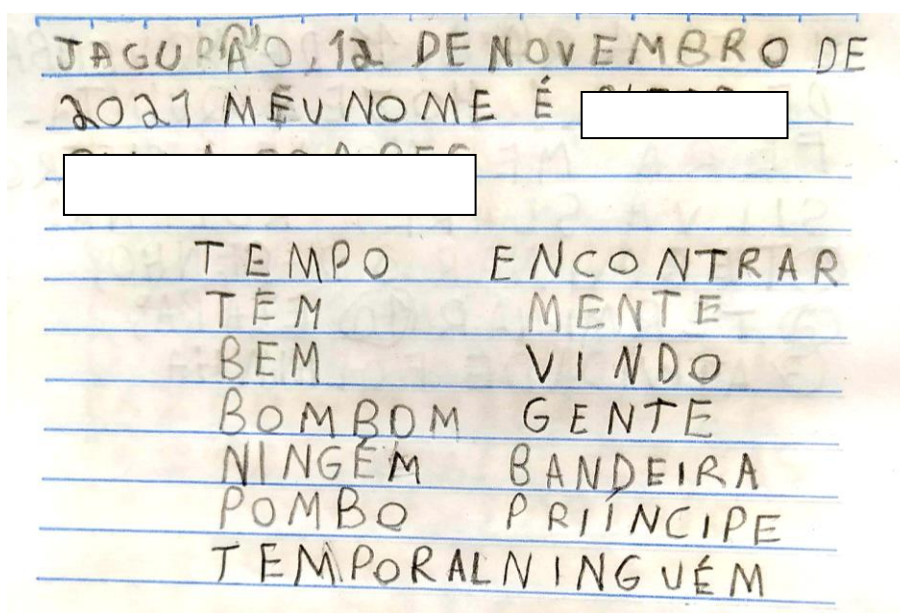 JAGURÃO, 12 DE NOVEMBRO DE
2021 MEU NOME É
TEMPO ENCONTRAR
TEM MENTE
BEM VINDO
BOMBOM GENTE
NINGÉM BANDEIRA
POMBO PRIÍNCIPE
TEMPORAL NINGUÉM